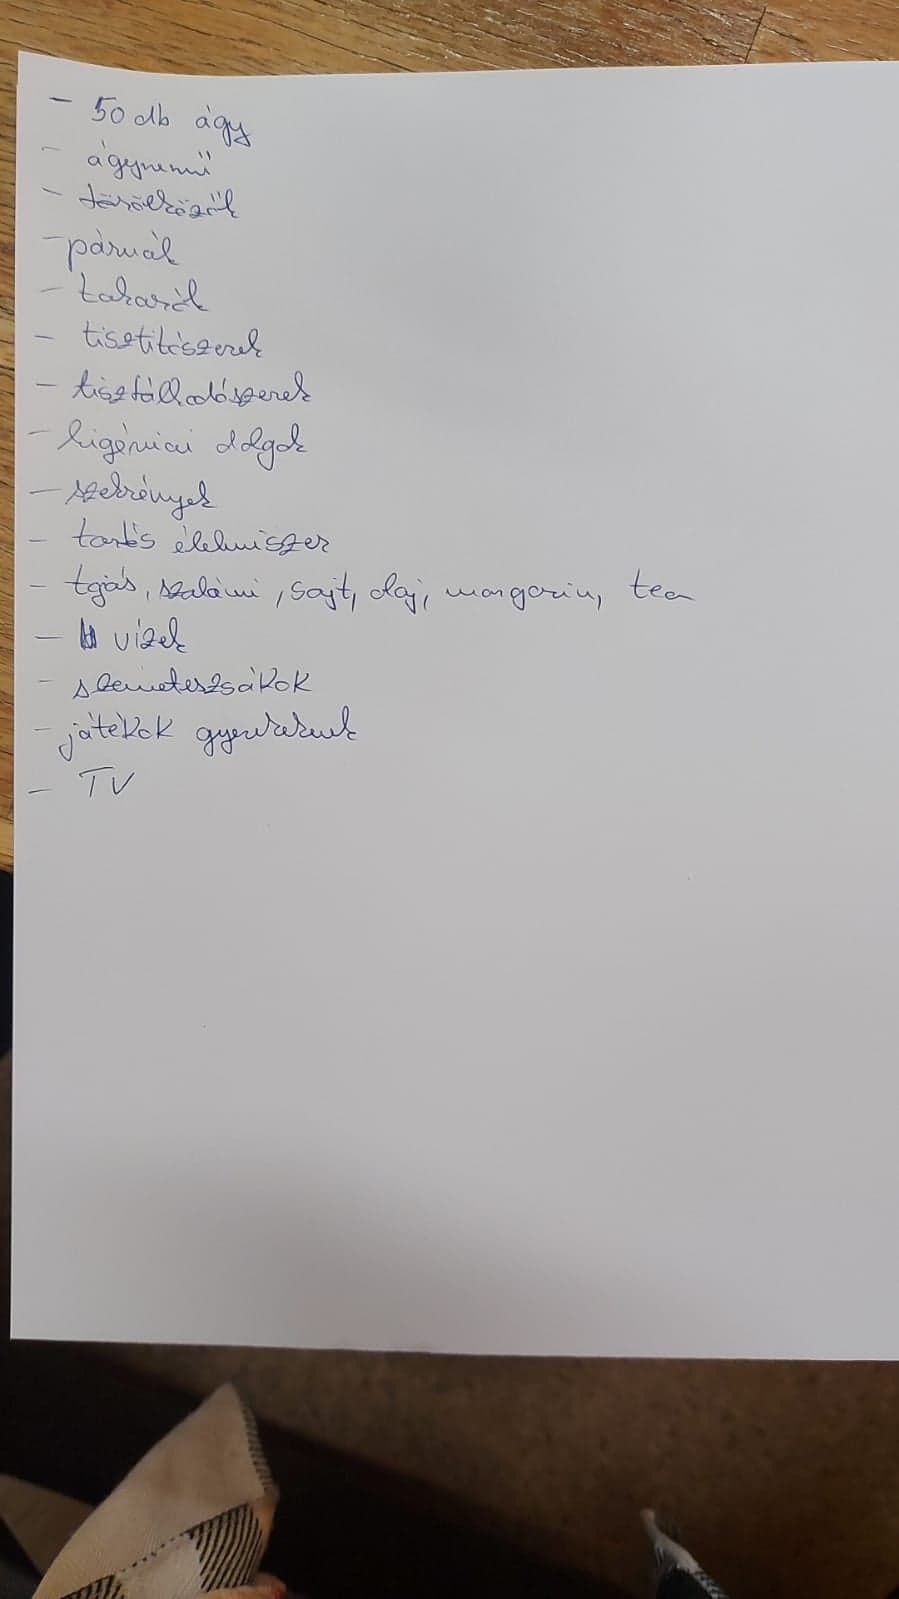 - 50 db ágy
- ágynemű
- törölközők
- párnák
- takarók
- tisztítószerek
- tisztálkodószerek
- higéniai dolgok
- szekrények
- tartós élelmiszer
- tojás, szalámi, sajt, olaj, margarin, tea
- vizek
- szemeteszsákok
- játékok gyerekeknek
- TV